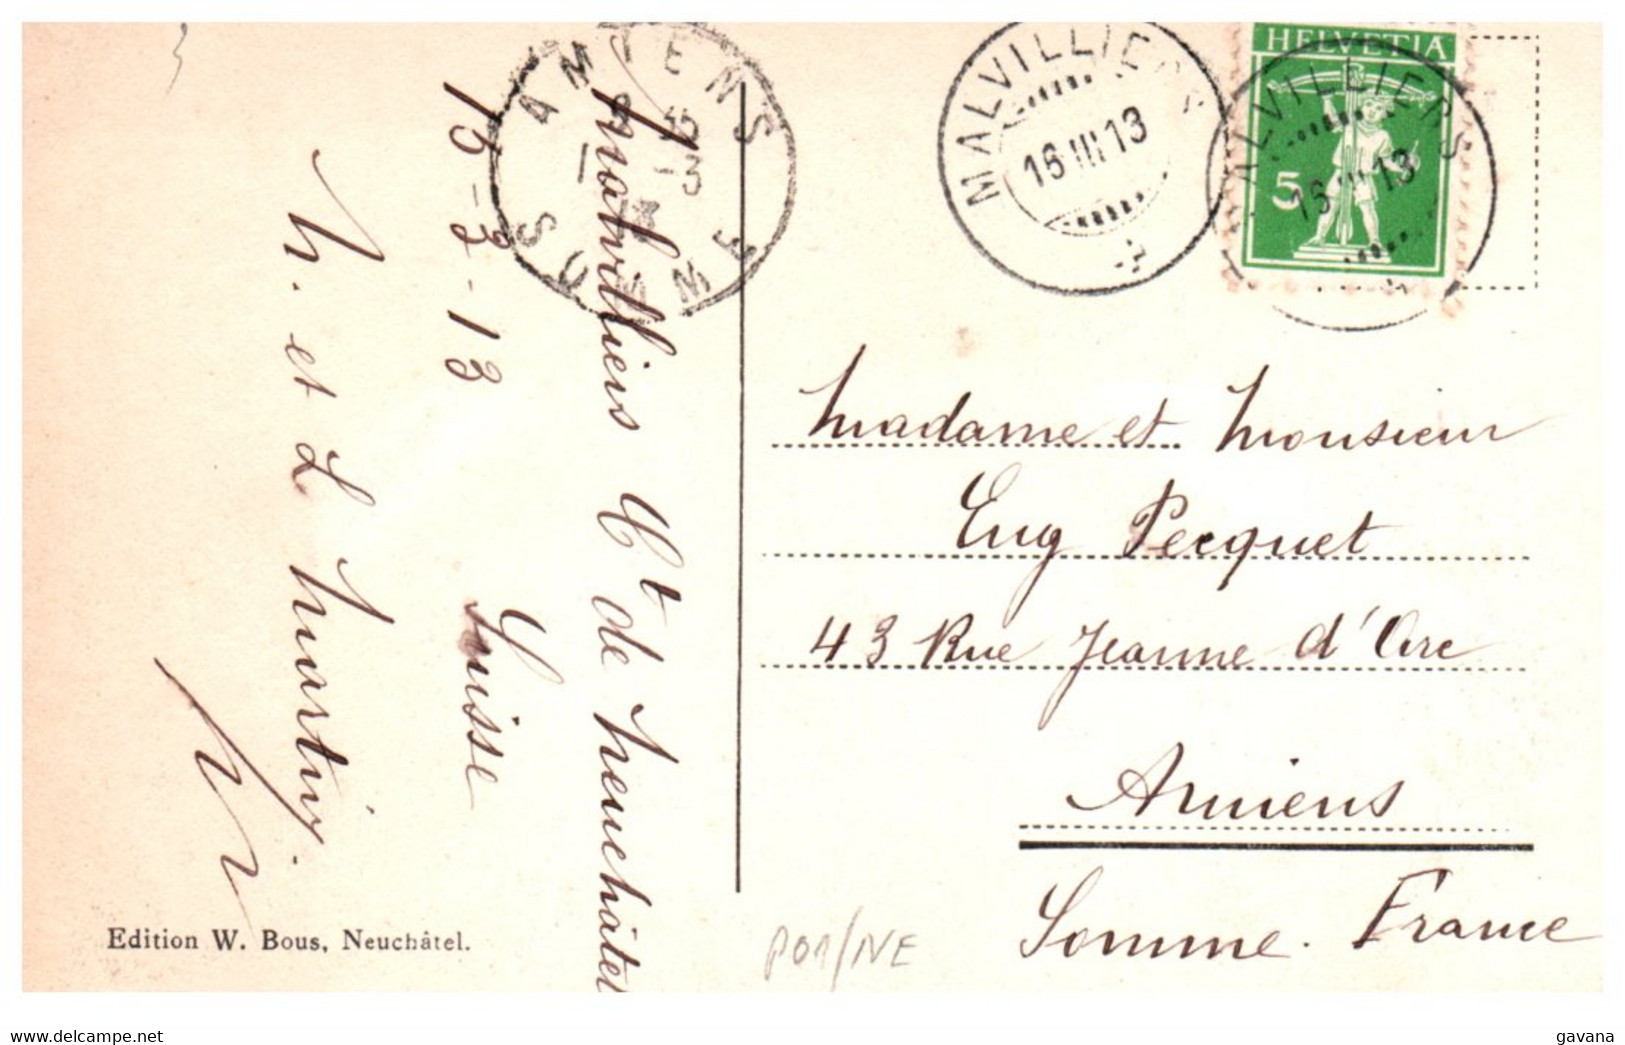 Malvilliers Ct de Neuchâtel
Suisse
15-3-13
M. et L Martin.
AMIENS
SOMME
MALVILLIERS
16 III 13
HELVETIA
5
MALVILLIERS
16 III 13
Madame et Monsieur
Eug Pecquet
43 Rue Jeanne d'Arc
Amiens
Somme. France
Edition W. Bous, Neuchâtel.
P01/NE
www.delcampe.net
gavana